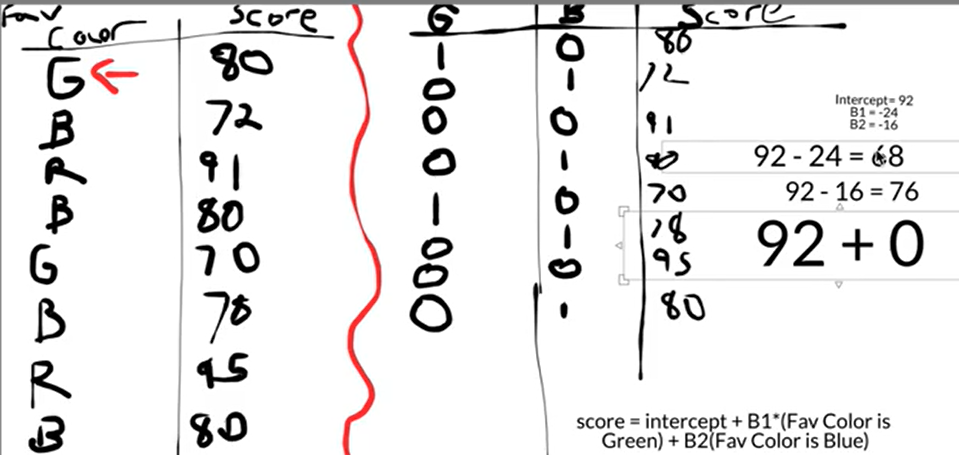 Fav Color Score
G 80
B 72
R 91
B 80
G 70
B 78
R 95
B 80
G B Score
1 0 80
0 1 72
0 0 91
0 1 80
1 0 70
0 1 78
0 0 95
0 1 80
Intercept= 92
B1 = -24
B2 = -16
92 - 24 = 68
92 - 16 = 76
92 + 0
score = intercept + B1*(Fav Color is
Green) + B2(Fav Color is Blue)